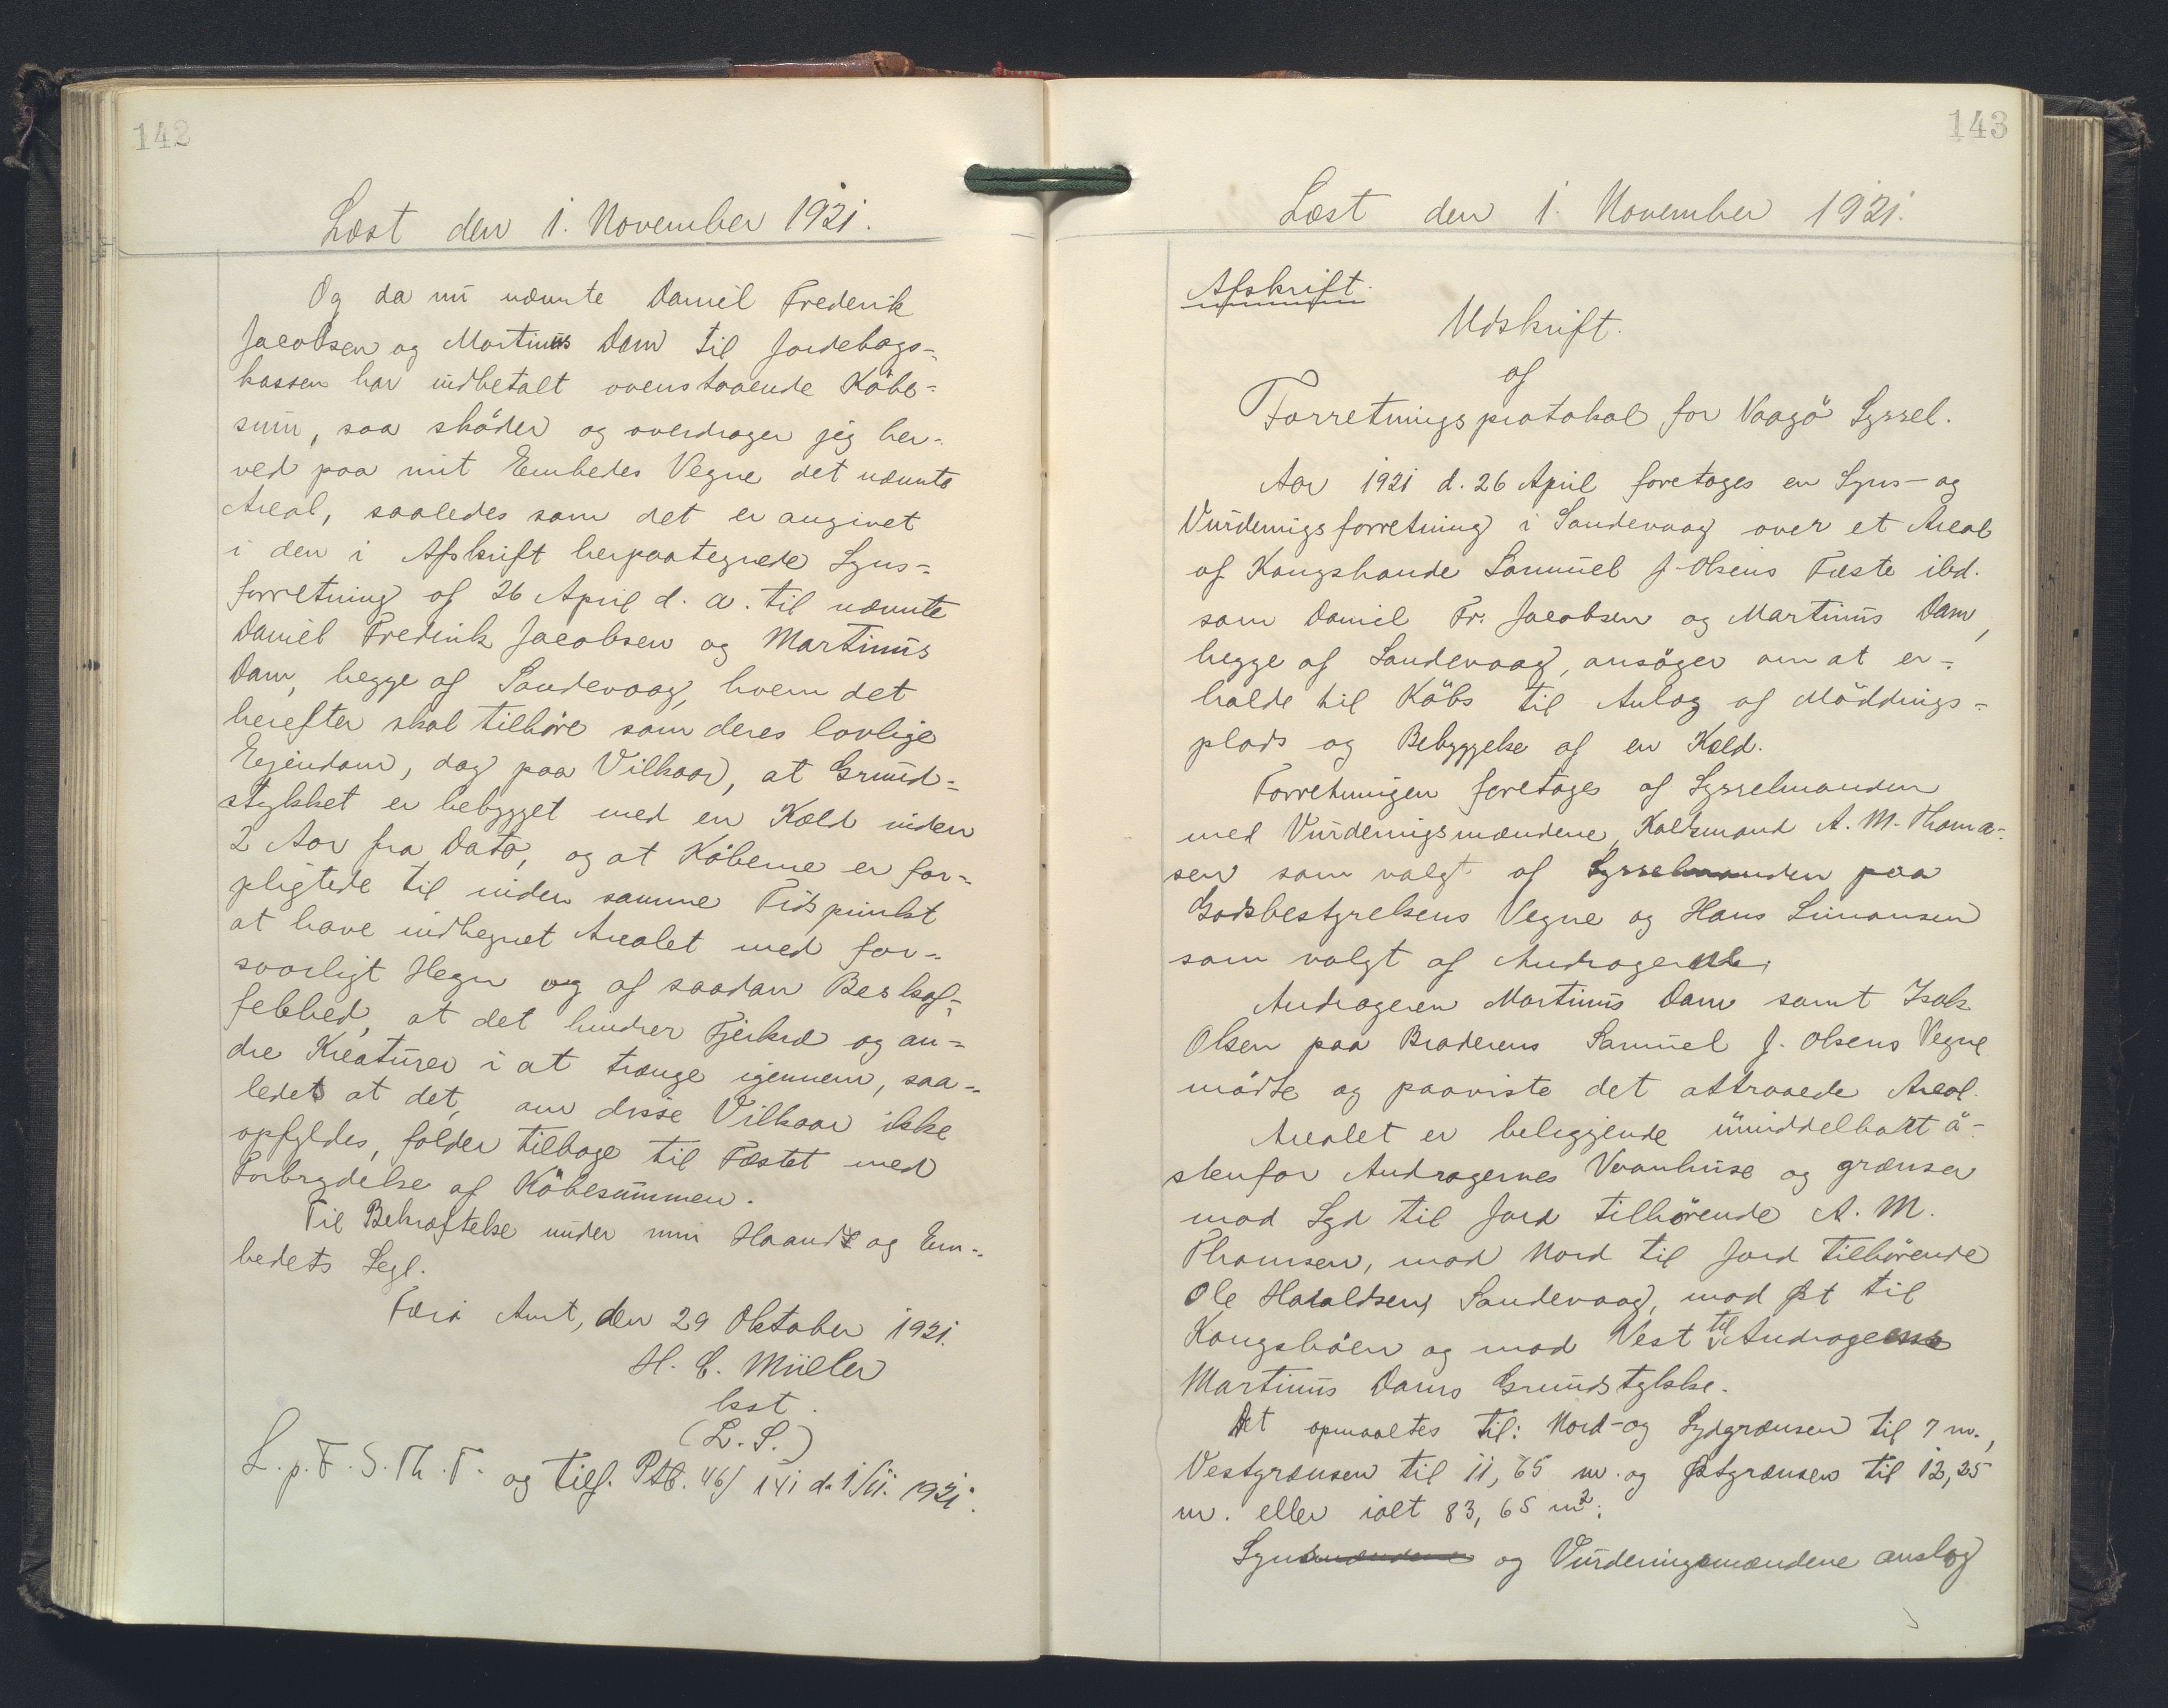 142
Læst den 1. November 1921.
Og da nu nævnte Daniel Frederik
Jacobsen og Martinus Dam til Jordebogs-
kassen har indbetalt ovenstaaende Købe-
sum, saa skøder og overdrager jeg her-
ved paa mit Embedes Vegne det nævnte
Areal, saaledes som det er angivet
i den i Afskrift herpaategnede Syns-
forretning af 26 April d. a. til nævnte
Daniel Frederik Jacobsen og Martinus
Dam, begge af Sandevaag, hvem det
herefter skal tilhøre som deres lovlige
Ejendom, dog paa Vilkaar, at Grund-
stykket er bebygget med en Kæld inden
2 Aar fra Dato, og at Køberne er for-
pligtede til inden samme Tidspunkt
at have indhegnet Arealet med for-
svarligt Hegn og af saadan Beskaf-
fenhed, at det hindrer Fjerkræ og an-
dre Kreaturer i at trænge igennem, saa-
ledes at det, om disse Vilkaar ikke
opfyldes, falder tilbage til Fæstet med
Forbrydelse af Købesummen.
Til Bekræftelse under min Haand og Em-
bedets Segl.
Færø Amt, den 29 Oktober 1921.
H. C. Müller
kst.
(L. S.)
L. p. F. S. Th. T. og tilf. Ptb. 46/141 d. 1/11. 1921.
143
Læst den 1. November 1921.
Afskrift.
Udskrift.
af
Forretningsprotokol for Vaagø Syssel.
Aar 1921 d. 26 April foretages en Syns- og
Vurderingsforretning i Sandevaag over et Areal
af Kongsbonde Samuel J. Olsens Fæste ibd.
som Daniel Fr. Jacobsen og Martinus Dam,
begge af Sandevaag, ansøger om at er-
holde til Købs til Anlæg af Møddings-
plads og Bebyggelse af en Kæld.
Forretningen foretages af Sysselmanden
med Vurderingsmændene, Kaldsmand A. M. Thoma-
sen som valgt af Sysselmanden paa
Godsbestyrelsens Vegne og Hans Simonsen
som valgt af Andragerne.
Andrageren Martinus Dam samt Isak
Olsen paa Broderens Samuel J. Olsens Vegne
mødte og paaviste det attraaede Areal.
Arealet er beliggende umiddelbart ø-
stenfor Andragernes Vaanhuse og grænser
mod Syd til Jord tilhørende A. M.
Thomsen, mod Nord til Jord tilhørende
Ole Haraldsen, Sandevaag, mod Øst til
Kongsbøen og mod Vest til Andragerens
Martinus Dams Grundstykke.
Det opmaaltes til: Nord- og Sydgrænsen til 7 m.,
Vestgrænsen til 11,65 m. og Østgrænsen til 12,25
m. eller ialt 83,65 m²:
Synsmændene og Vurderingsmændene anslog